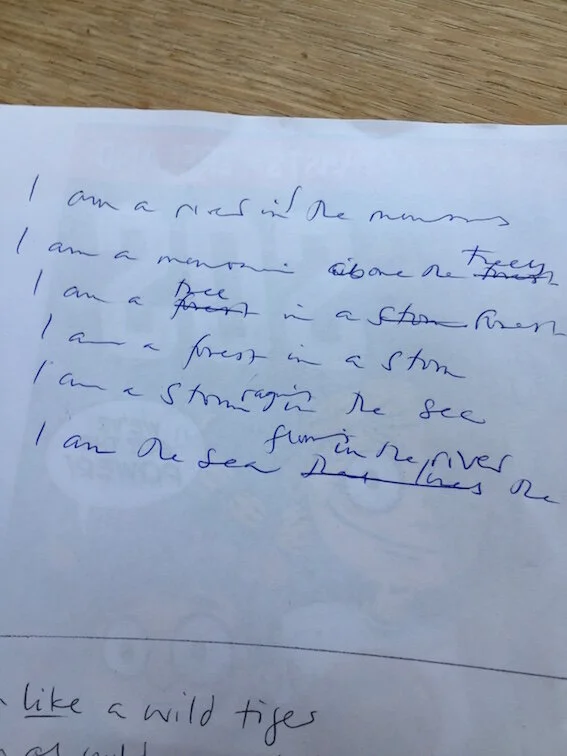 I am a river in the mountains
I am a mountain above the forest trees
I am a forest tree in a storm forest
I am a forest in a storm
I am a storm raging in the sea
I am the sea flowing in the river that lives the
like a wild tiger